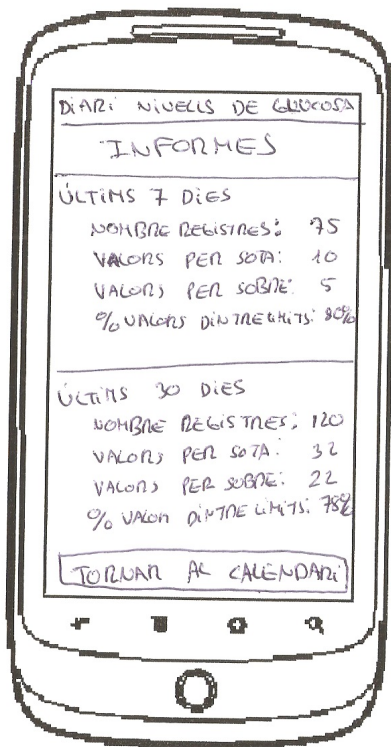 DIARI NIVELLS DE GLUCOSA
INFORMES
ÚLTIMS 7 DIES
NOMBRE REGISTRES: 75
VALORS PER SOTA: 10
VALORS PER SOBRE: 5
% VALORS DINTRE LIMITS: 80%
ÚLTIMS 30 DIES
NOMBRE REGISTRES: 120
VALORS PER SOTA: 32
VALORS PER SOBRE: 22
% VALORS DINTRE LIMITS: 78%
TORNAR AL CALENDARI